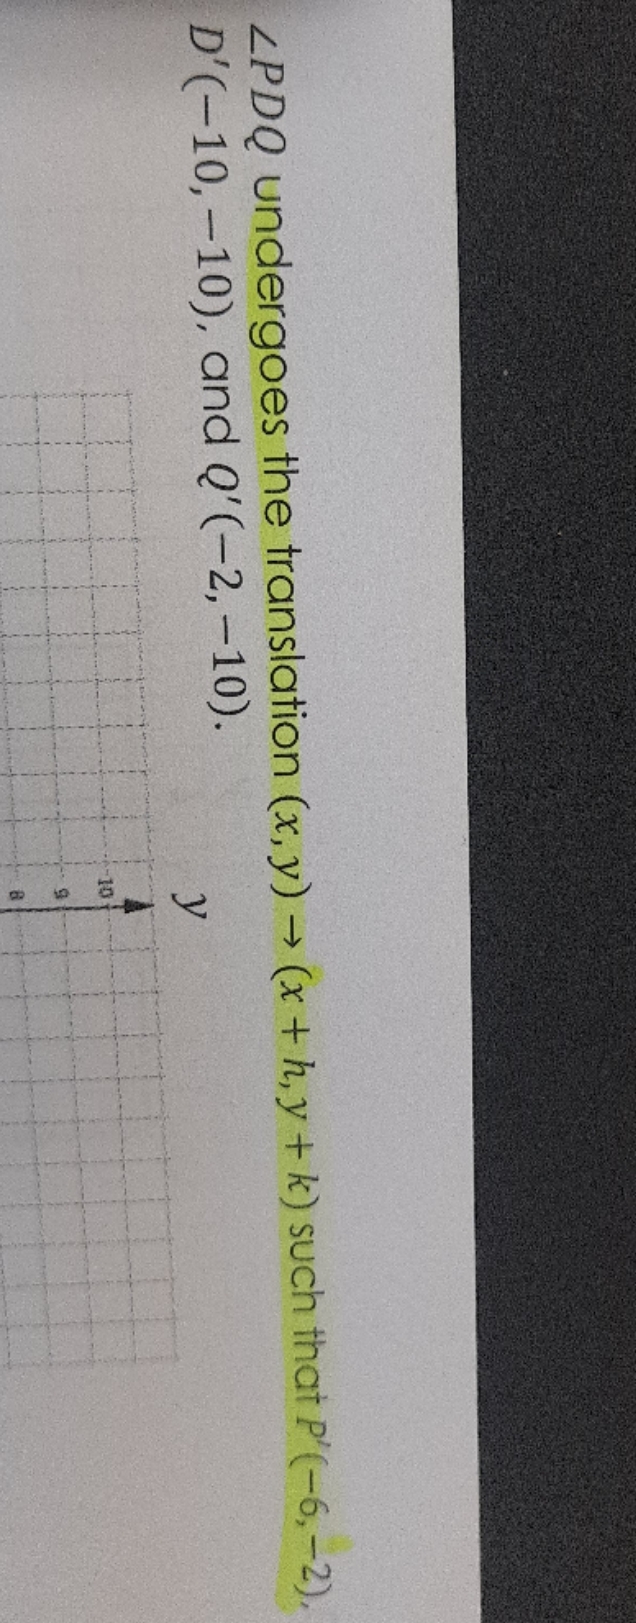 ∠PDQ undergoes the translation (x, y) → (x + h, y + k) such that P′(−6, −2),
D′(−10, −10), and Q′(−2, −10).
y
10
9
8